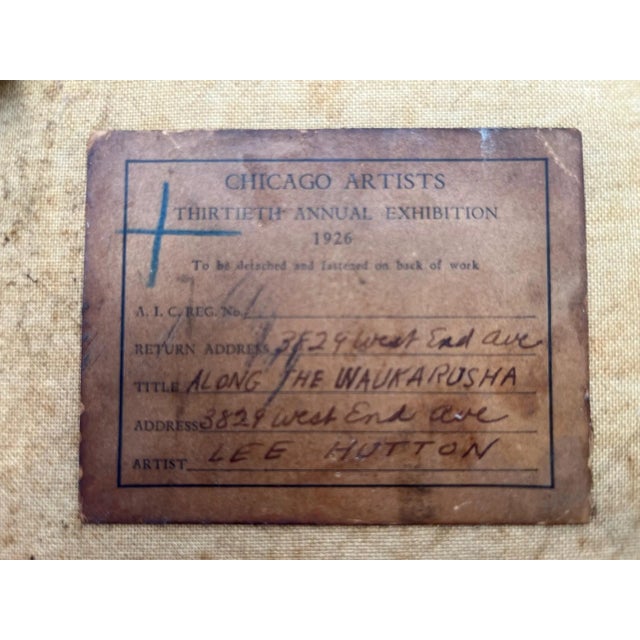 CHICAGO ARTISTS
THIRTIETH ANNUAL EXHIBITION
1926
To be detached and fastened on back of work
A. I. C. REG. No.
RETURN ADDRESS 3829 West End Ave
TITLE ALONG THE WAUKARUSHA
ADDRESS 3829 West End Ave
ARTIST LEE HUTTON